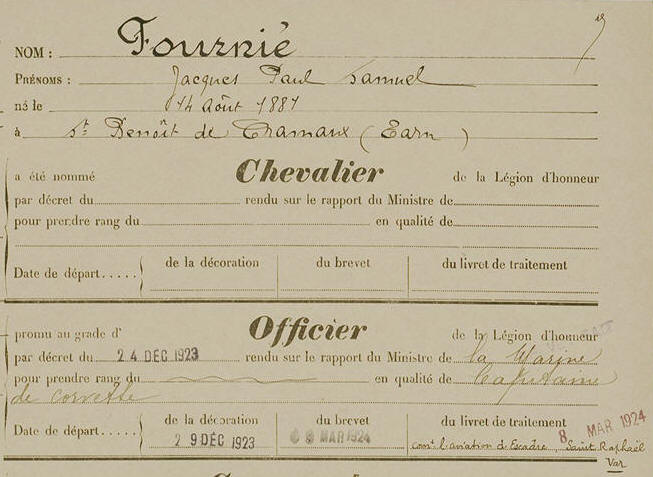 NOM : Fournié
PRÉNOMS : Jacques Paul Samuel
né le 14 Août 1881
à St Benoît de Cramaux (Tarn)
a été nommé Chevalier de la Légion d'honneur
par décret du rendu sur le rapport du Ministre de
pour prendre rang du en qualité de
Date de départ..... de la décoration du brevet du livret de traitement
promu au grade d' Officier de la Légion d'honneur
par décret du 24 DÉC 1923 rendu sur le rapport du Ministre de la Marine
pour prendre rang du en qualité de Capitaine
de corvette
Date de départ..... de la décoration du brevet du livret de traitement
29 DÉC 1923 8 MAR 1924 8 MAR 1924
comt l'aviation de Escadre, Saint Raphaël
Var